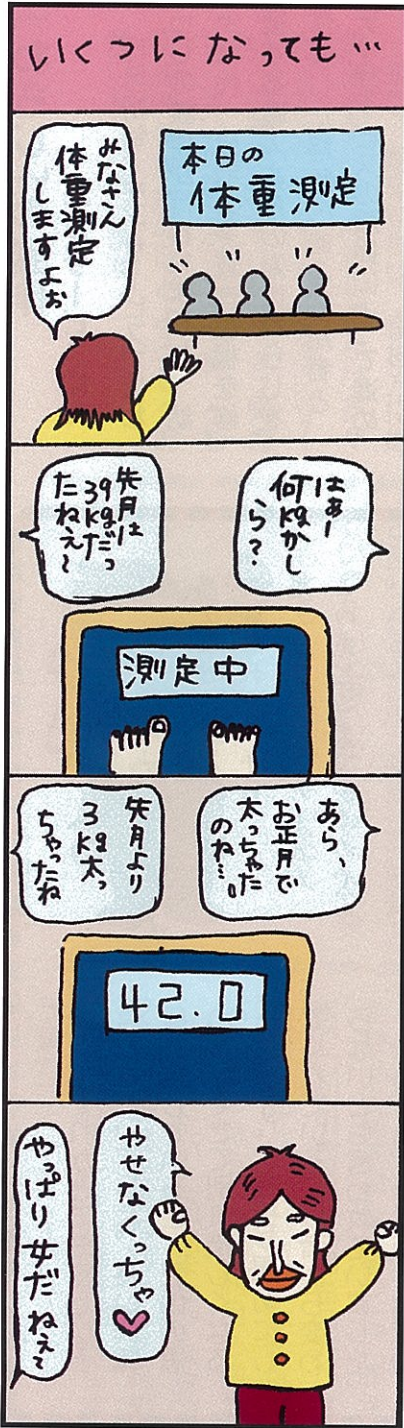 いくつになっても…
本日の
体重測定
みなさん
体重測定
しますよぉ
はぁー
何kgかし
ら?
先月は
39kgだっ
たねぇ~
測定中
あら、
お正月で
太っちゃた
のね…。
先月より
3kg太っ
ちゃったね
42.0
やせなくっちゃ♡
やっぱり女だねぇ~